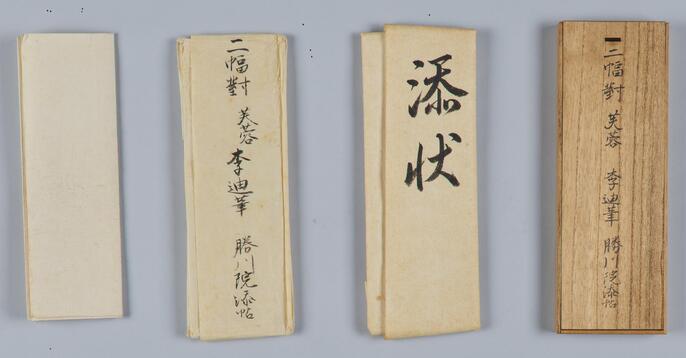 二幅對 芙蓉 李迪筆 勝川院添帖
添状
二幅對 芙蓉 李迪筆 勝川院添帖